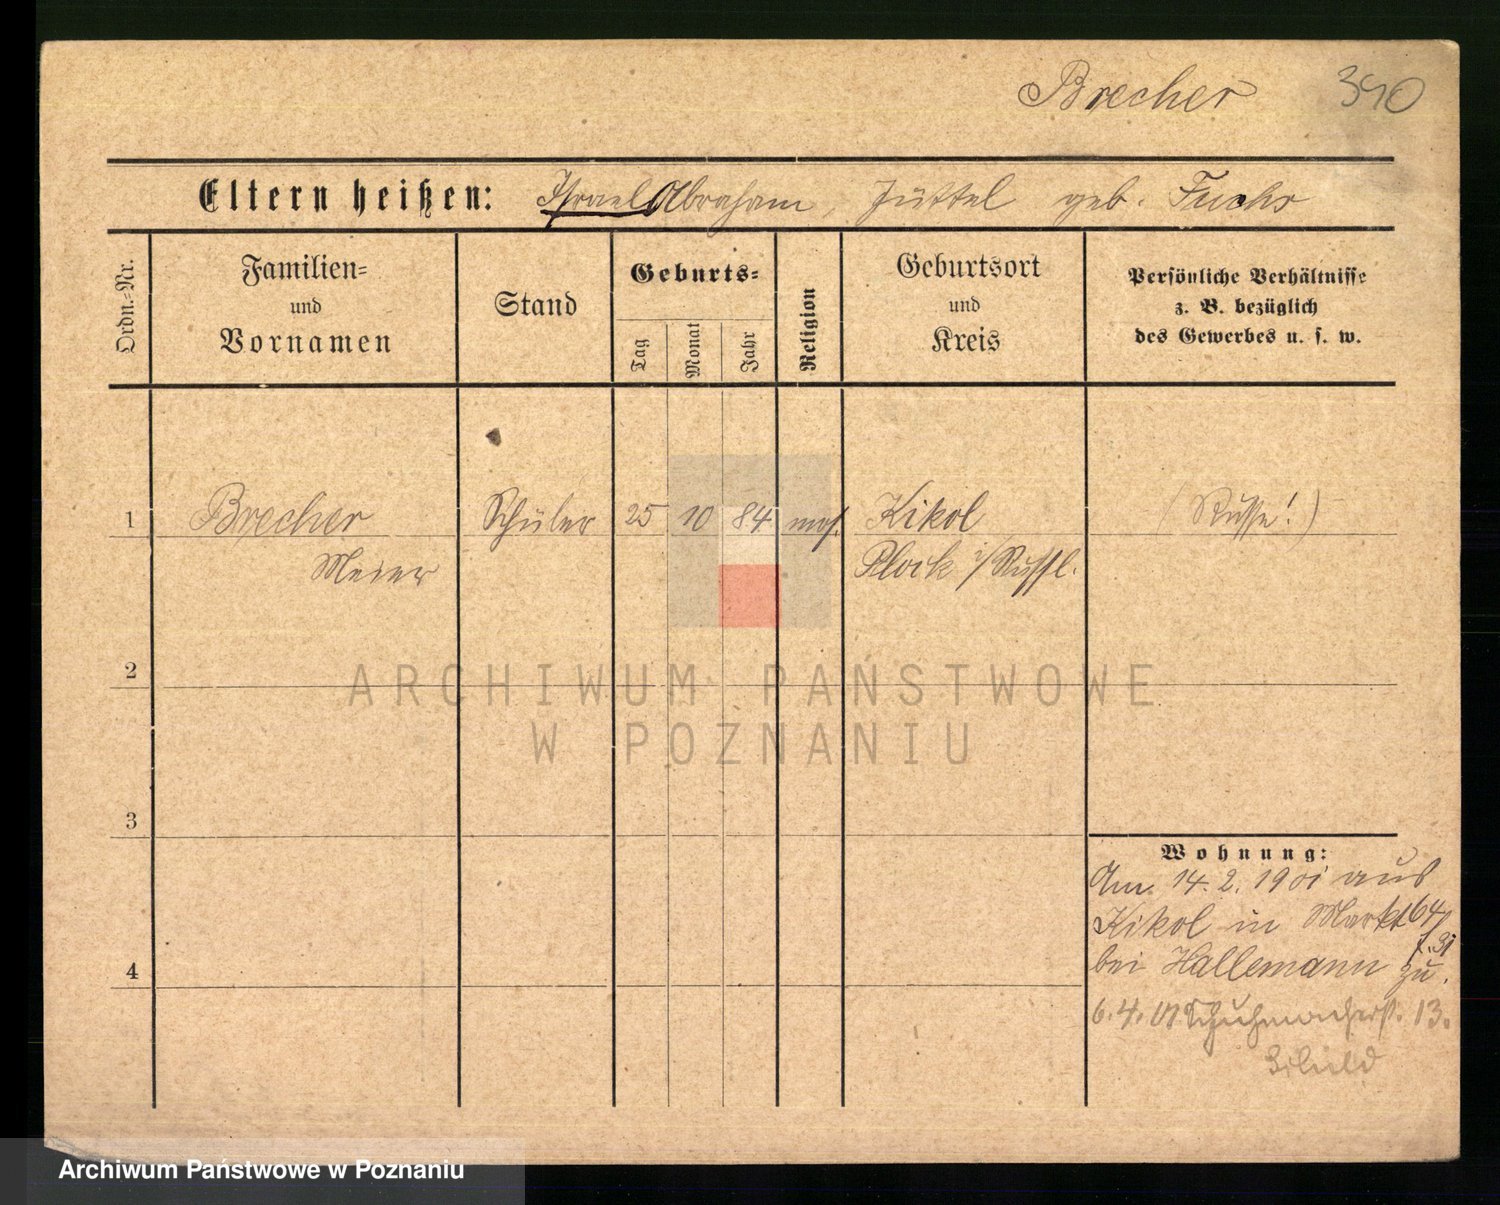 Brecher 390
Eltern heißen: Israel Abraham, Jüttel geb. Fuchs
Ordn.-Nr.
Familien-
und
Vornamen
Stand
Geburts-
Tag
Monat
Jahr
Religion
Geburtsort
und
Kreis
Persönliche Verhältnisse
z. B. bezüglich
des Gewerbes u. s. w.
1 Brecher Schüler 25 10 84 mos. Kikol (Russe!)
Meier Plock i/Russl.
2
3
4
Wohnung:
Am 14. 2. 1901 aus
Kikol in Markt 64
bei Hallemann zu.
6. 4. 01 Schuhmacherst. 13.
ARCHIWUM PAŃSTWOWE
W POZNANIU
Archiwum Państwowe w Poznaniu